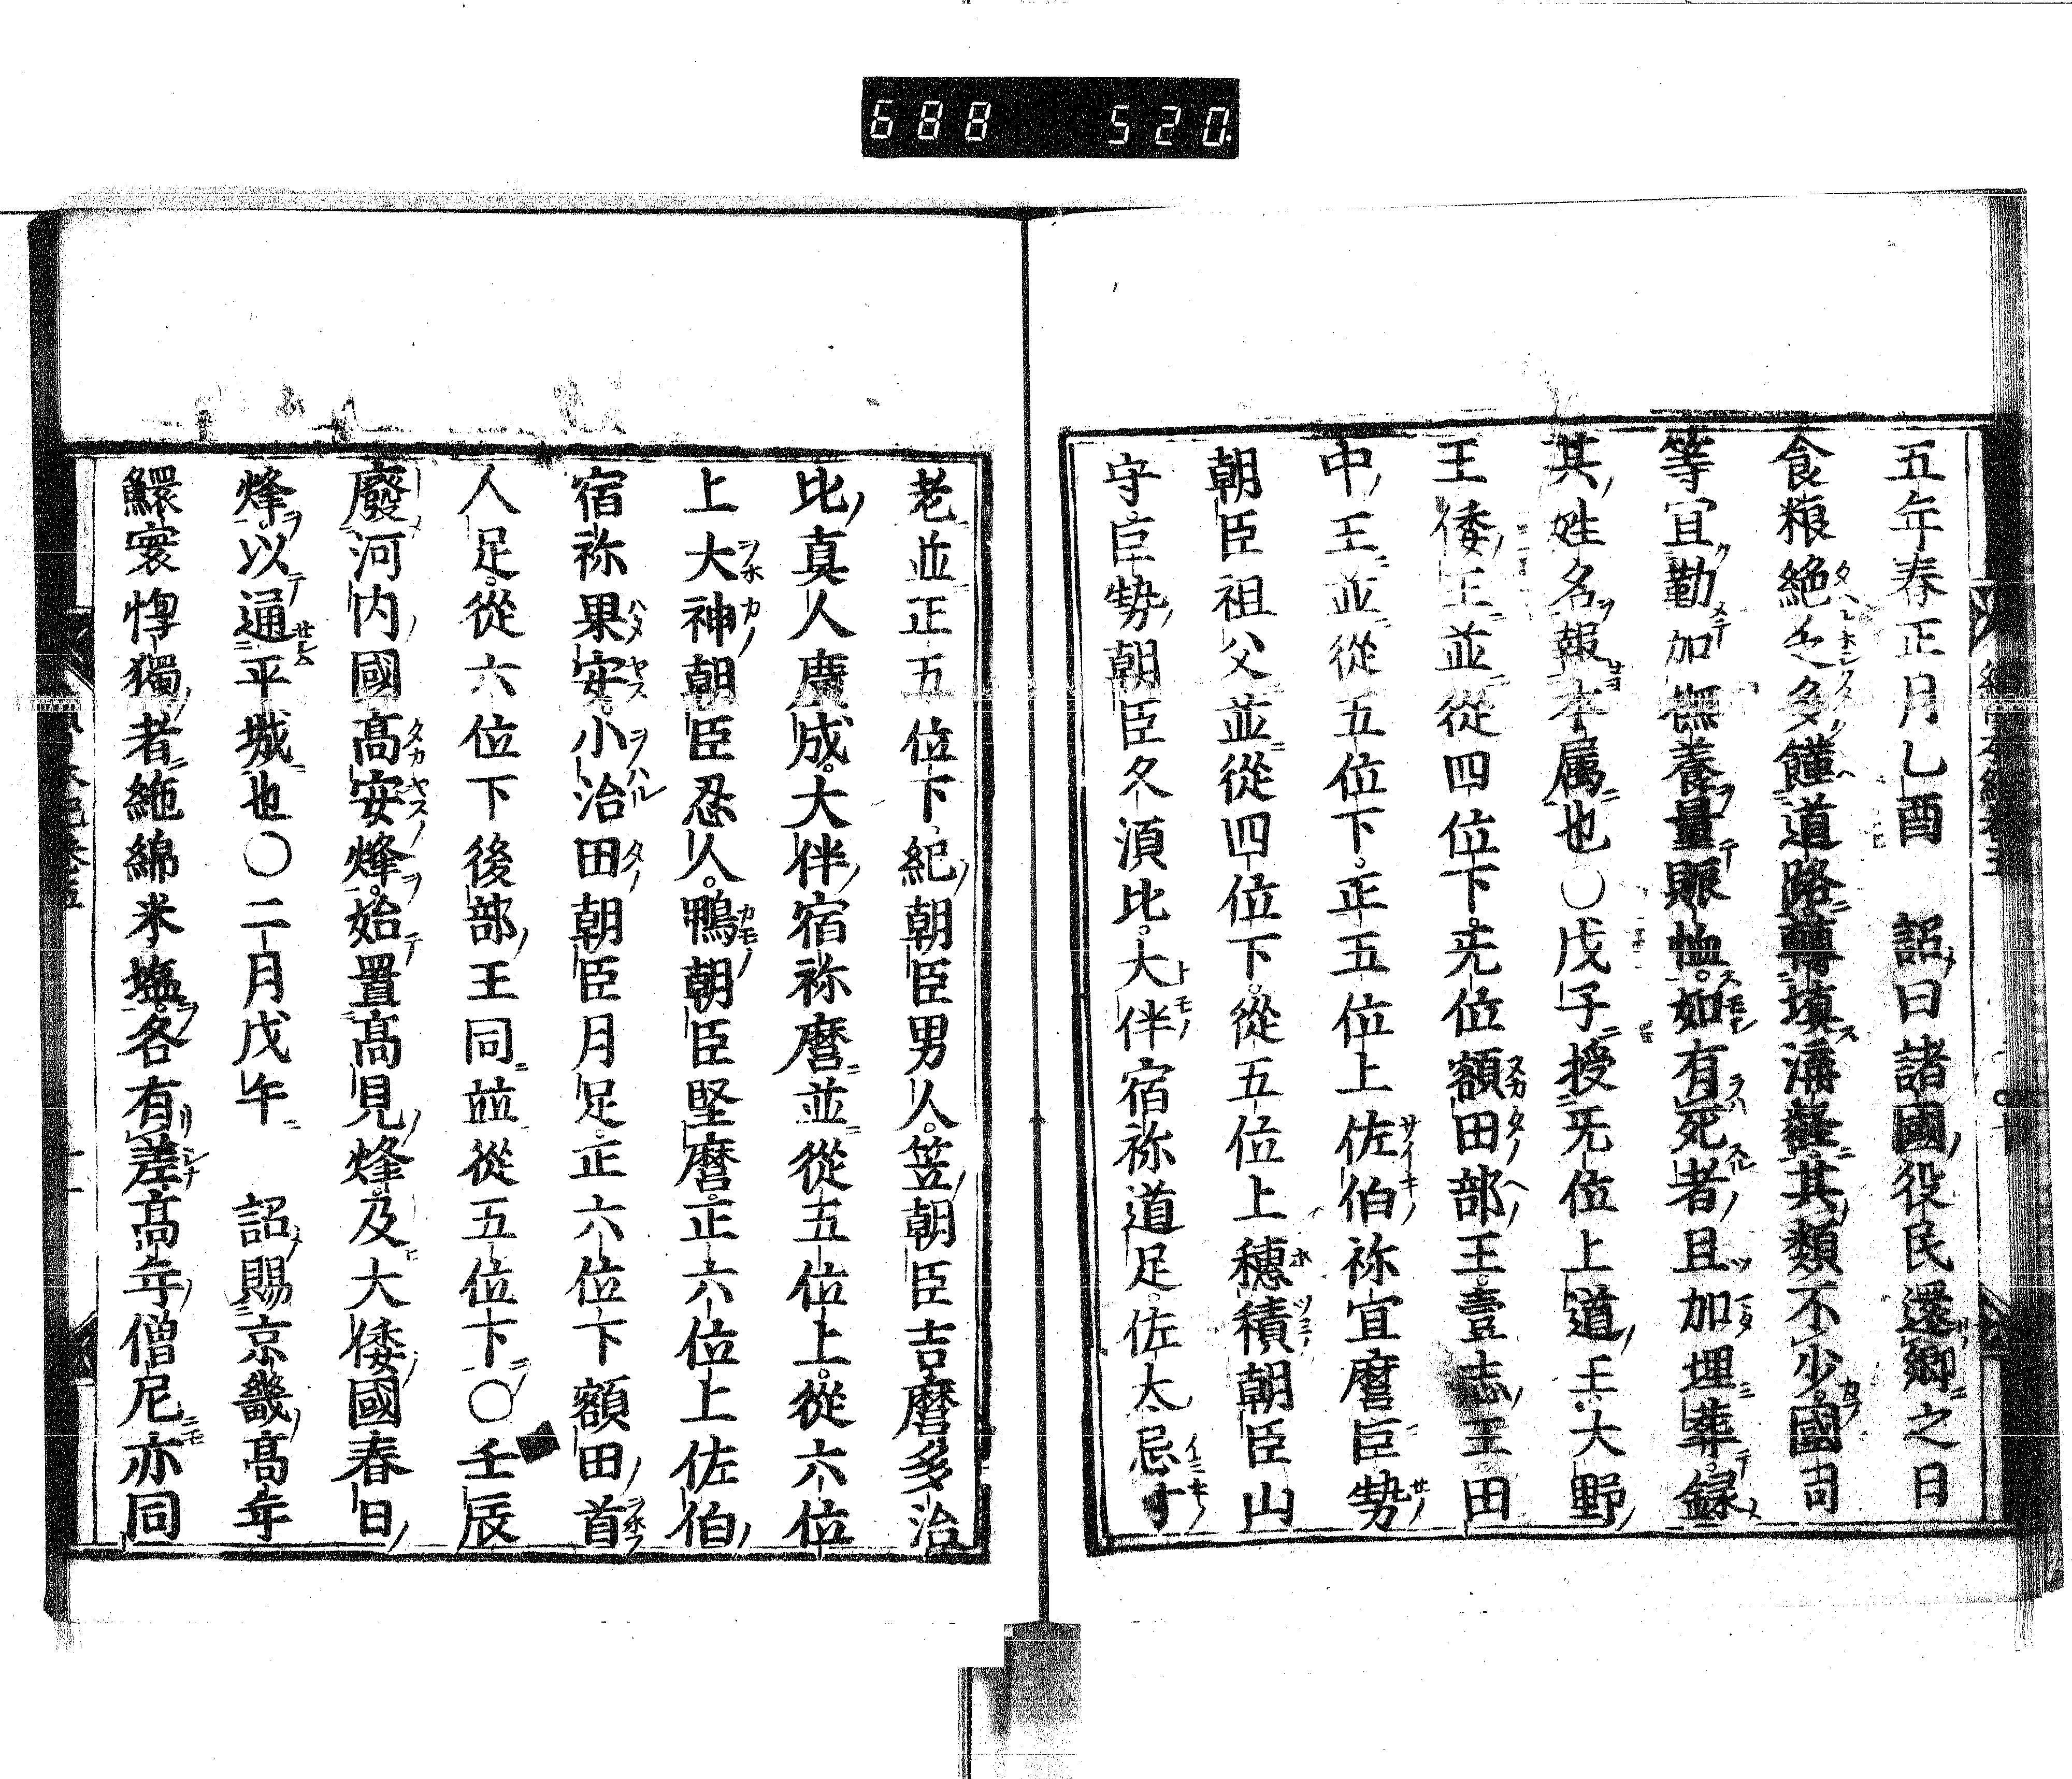 688 520
五年春正月乙酉 詔曰諸國役民還郷之日
食粮絶乏多饉道路轉填溝壑其類不少國司
等宜勤加撫養量賑恤如有死者且加埋葬録
其姓名報本属也〇戊子授无位上道王大野
王倭王並從四位下无位額田部王壹志王田
中王並從五位下正五位上佐伯祢宜麿巨勢
朝臣祖父並從四位下從五位上穗積朝臣山
守巨勢朝臣久須比大伴宿祢道足佐太忌寸
老並正五位下紀朝臣男人笠朝臣吉麿多治
比真人廣成大伴宿祢麿並從五位上從六位
上大神朝臣忍人鴨朝臣堅麿正六位上佐伯
宿祢果安小治田朝臣月足正六位下額田首
人足從六位下後部王同並從五位下〇壬辰
廢河内國高安烽始置高見烽及大倭國春日
烽以通平城也〇二月戊午 詔賜京畿高年
鰥寡惸獨者絁綿米塩各有差高年僧尼亦同